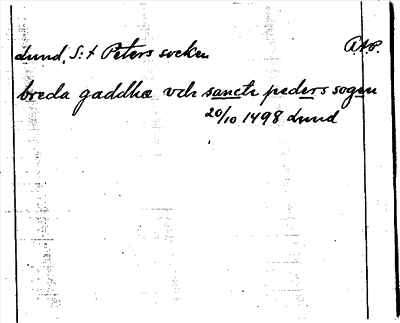 Lund, S:t Peters socken
breda gaddhæ vdi sancti peders sogen
20/10 1498 Lund